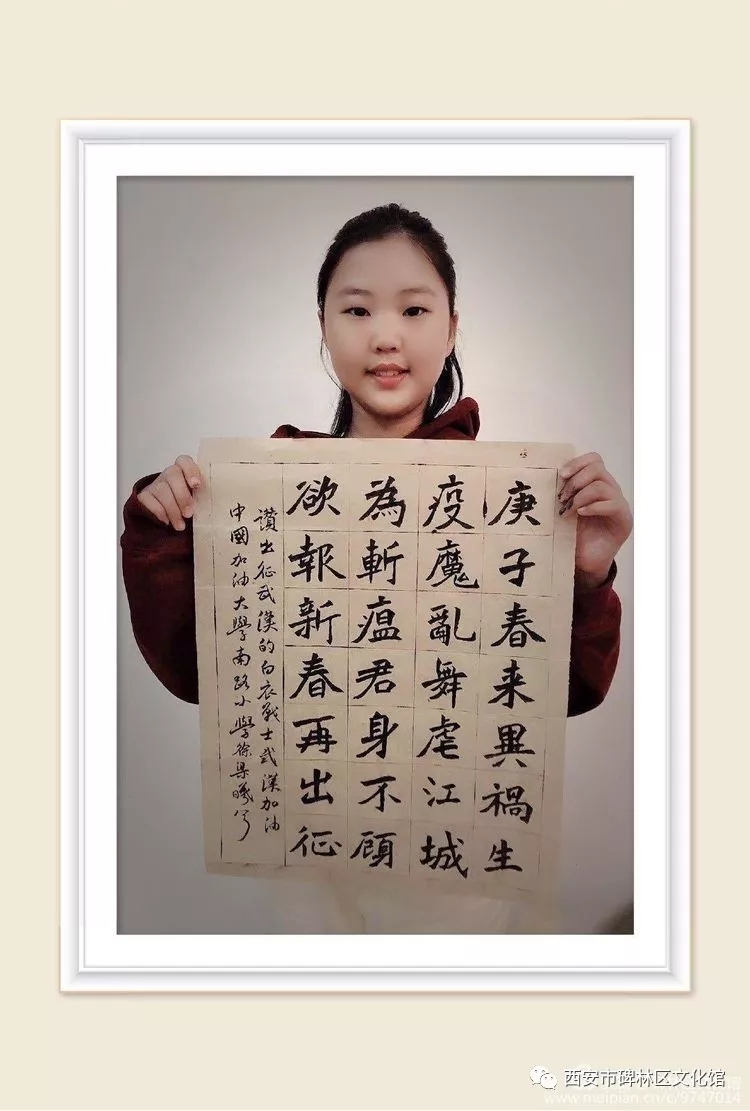 庚子春来異禍生
疫魔亂舞虐江城
為斬瘟君身不顧
欲報新春再出征
讚出征武漢的白衣戰士武漢加油
中國加油大學南路小學徐
西安市碑林区文化馆
www.meipian.cn/c/9747014